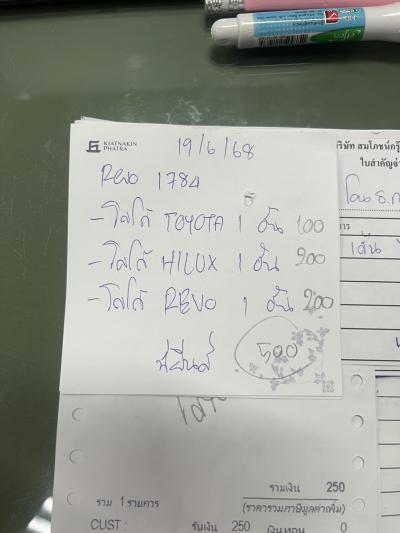 KIATNAKIN
PHATRA
19/6/68
Revo 1784
- โลโก้ TOYOTA 1 อัน 100
- โลโก้ HILUX 1 อัน 200
- โลโก้ REVO 1 อัน 200
500
ริษัท สมโภชน์กรุ๊
ใบสำคัญจ่
โดย ธ.ก
การ
รวมเงิน 250
รวม 1 รายการ
(ราคารวมภาษีมูลค่าเพิ่ม)
CUST : รับเงิน 250 เงินทอน 0